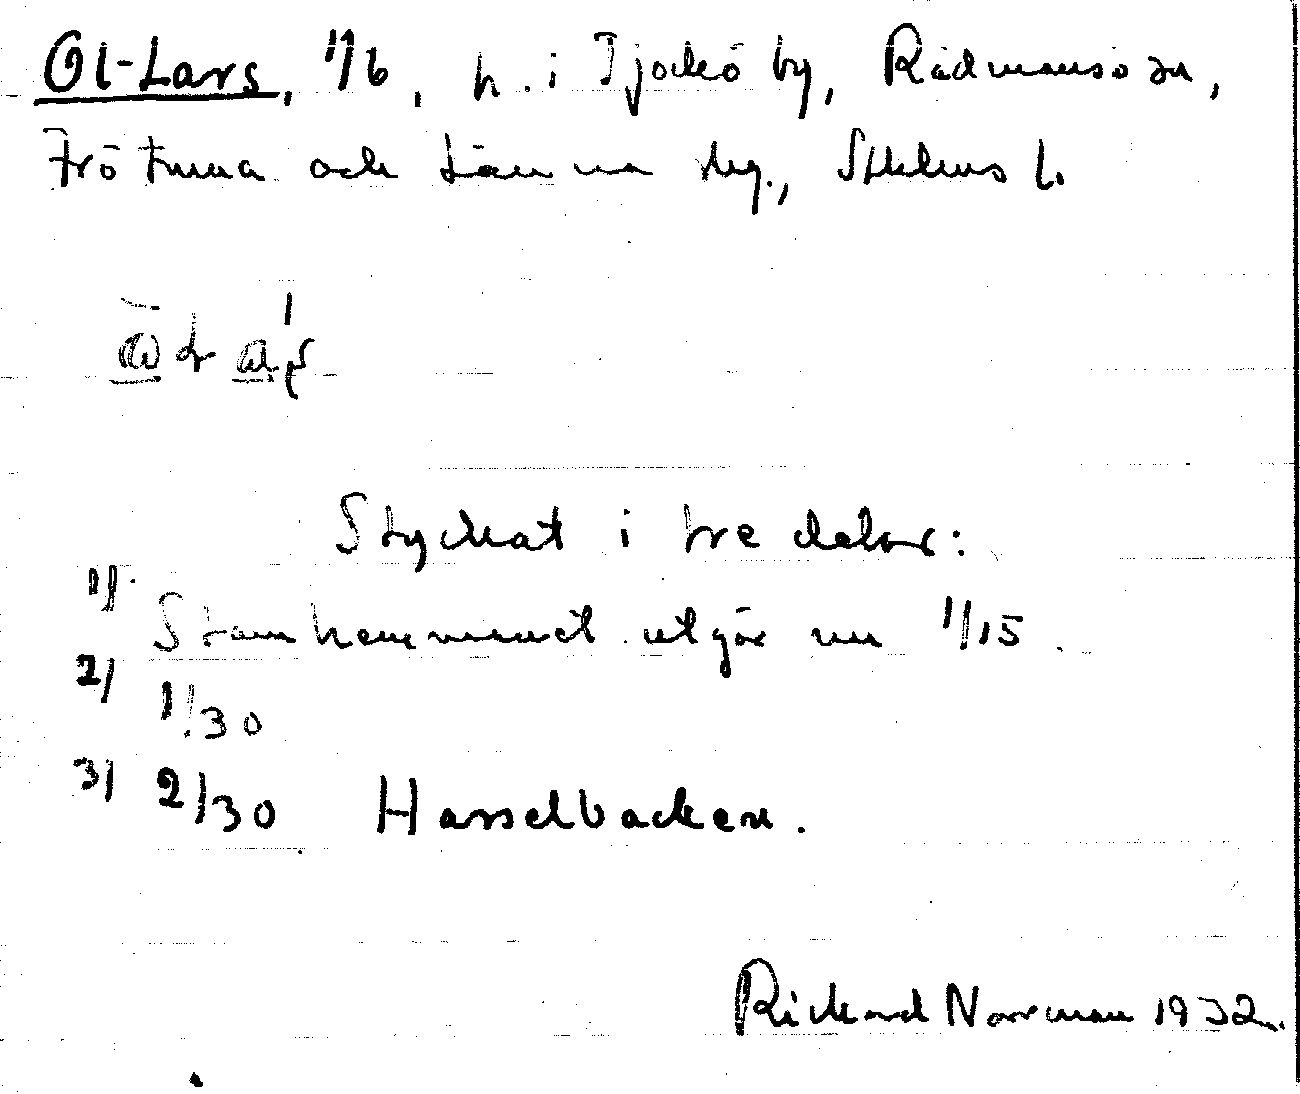 Ol-Lars, 1/6, h. i Tjockö by, Rådmansö sn,
Frötuna och Länna skg., Sthlms l.
Styckat i tre delar:
1) Stamhemmanet utgör nu 1/15
2) 1/30
3) 2/30 Hasselbacken.
Rickard Norrman 1932.